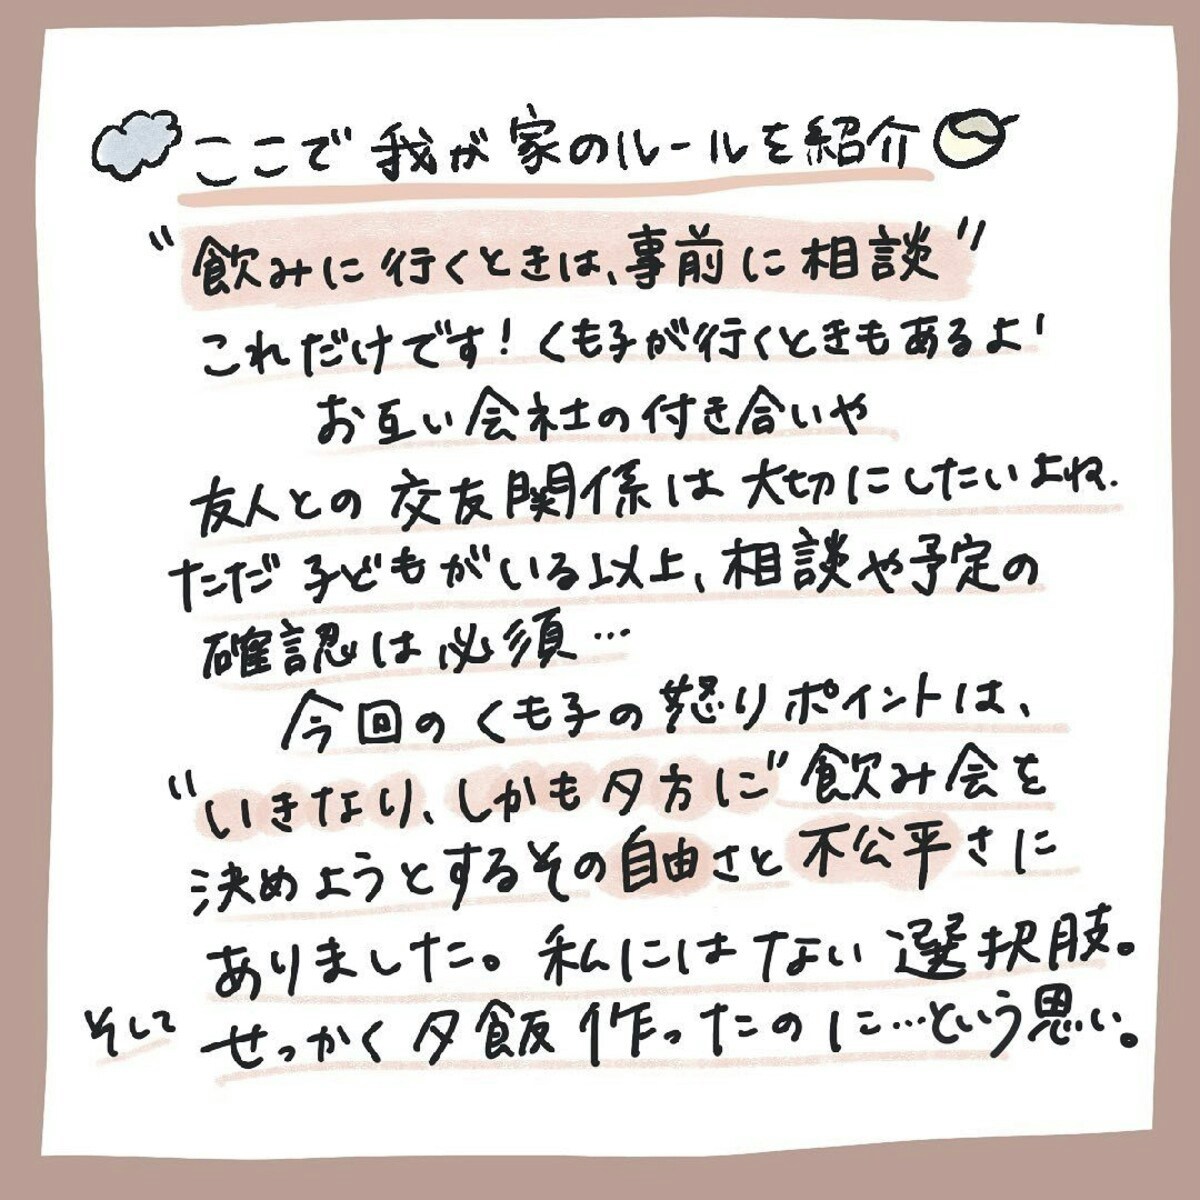 ここで我が家のルールを紹介
"飲みに行くときは、事前に相談"
これだけです！くも子が行くときもあるよ！
お互い会社の付き合いや
友人との交友関係は大切にしたいよね.
ただ子どもがいる以上、相談や予定の
確認は必須…
今回のくも子の怒りポイントは、
"いきなり、しかも夕方に"飲み会を
決めようとするその自由さと不公平さに
ありました。私にはない選択肢。
そして せっかく夕飯作ったのに…という思い。